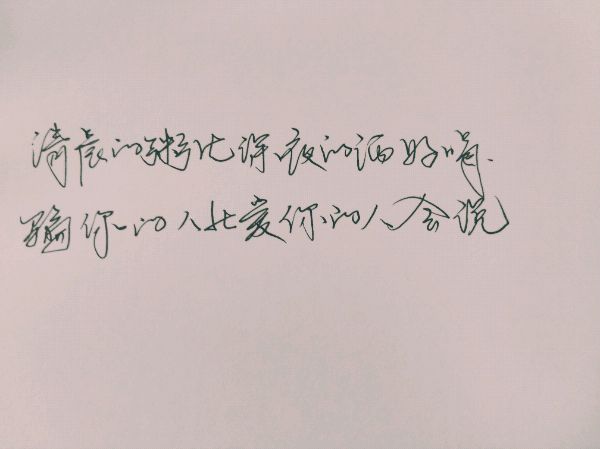 清晨的粥比深夜的酒好喝.
骗你的人比爱你的人会说